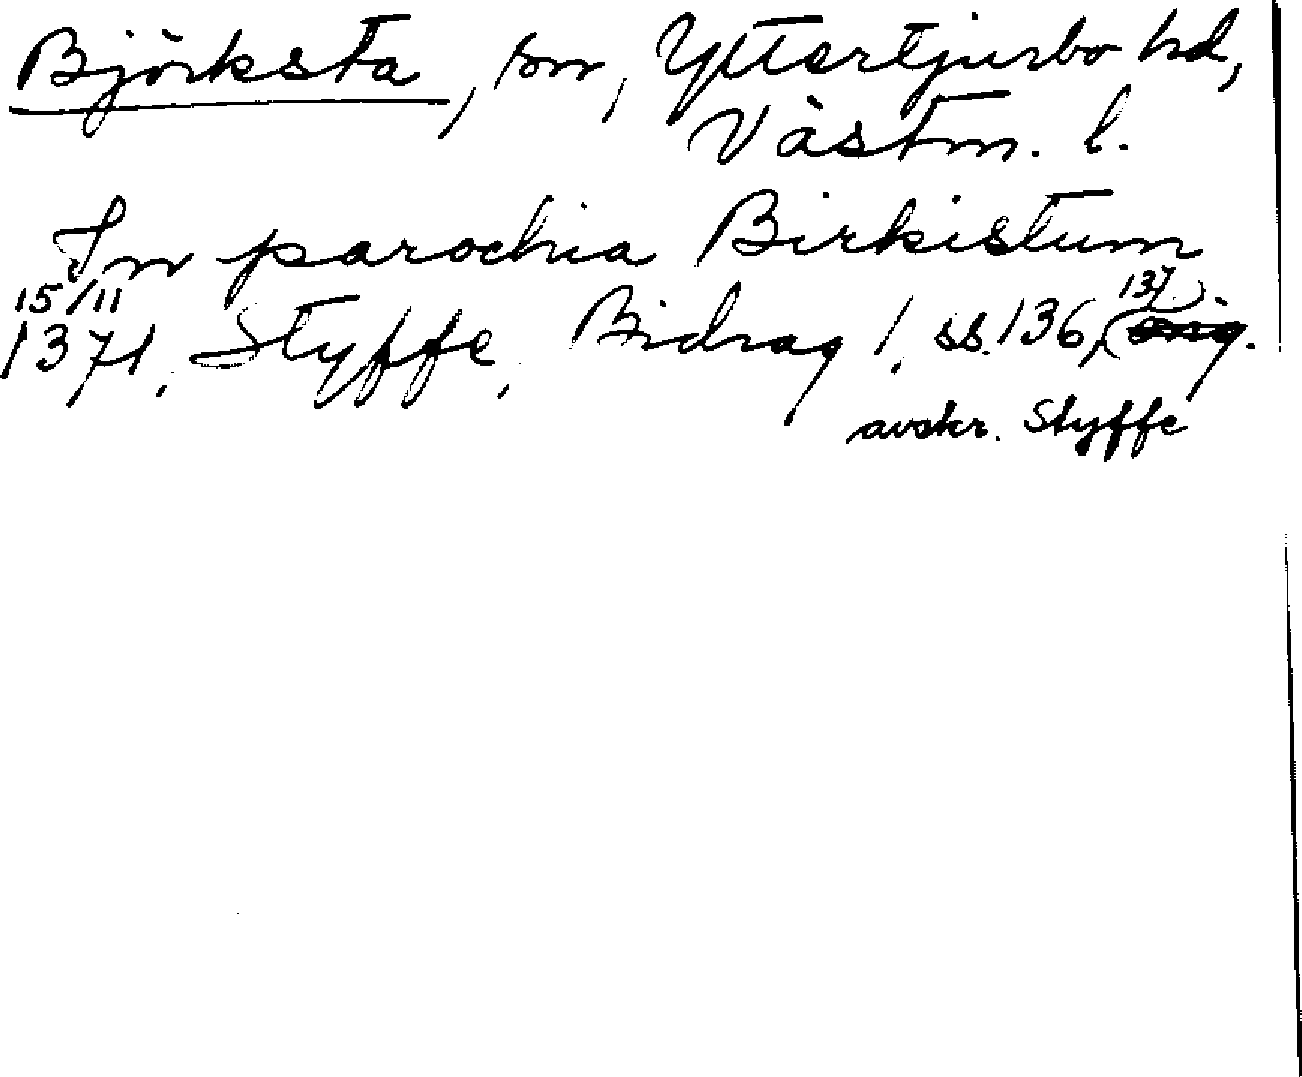 Björksta, sn, Yttertjurbo hd,
Västm. l.
In parochia Birkistum
15/11
1371, Styffe, Bidrag 1, ss. 136, 137)
(orig.
avskr. Styffe